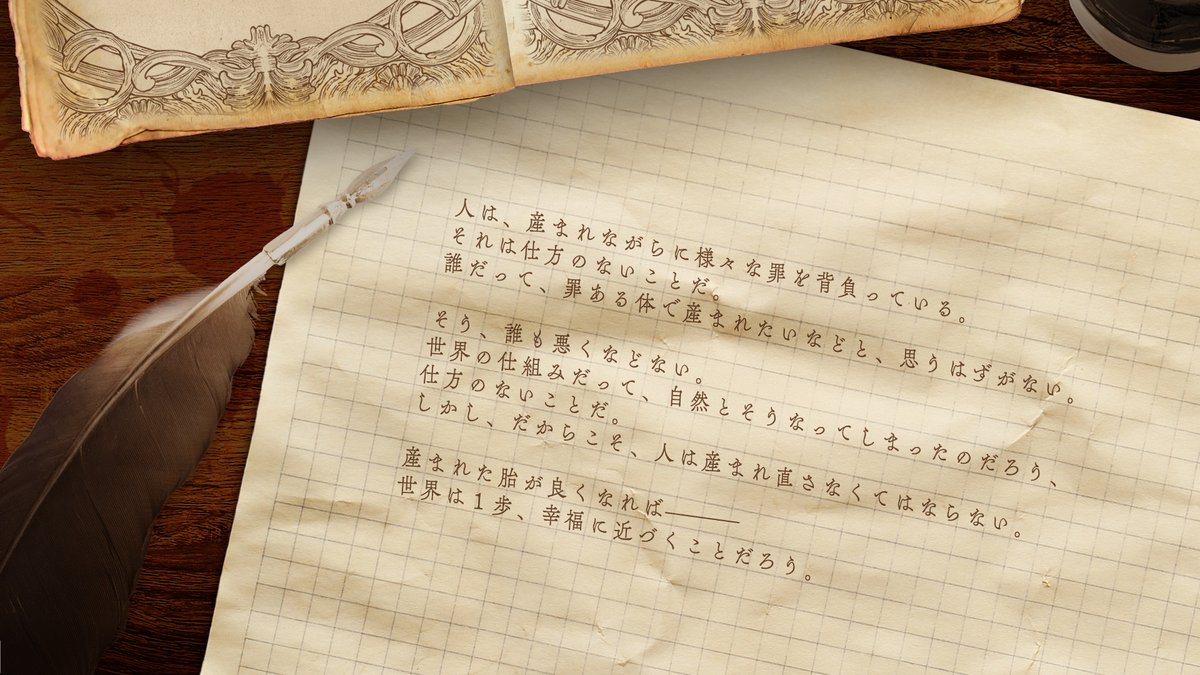 人は、産まれながらに様々な罪を背負っている。
それは仕方のないことだ。
誰だって、罪ある体で産まれたいなどと、思うはずがない。
そう、誰も悪くなどない。
世界の仕組みだって、自然とそうなってしまったのだろう、
仕方のないことだ。
しかし、だからこそ、人は産まれ直さなくてはならない。
産まれた胎が良くなれば―――
世界は1歩、幸福に近づくことだろう。